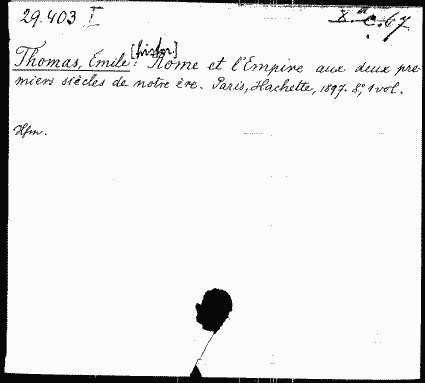 29.403 I
Thomas, Émile: [histor.] Rome et l'Empire aux deux pre-
miers siècles de notre ère. Paris, Hachette, 1897. 8°, 1 vol.